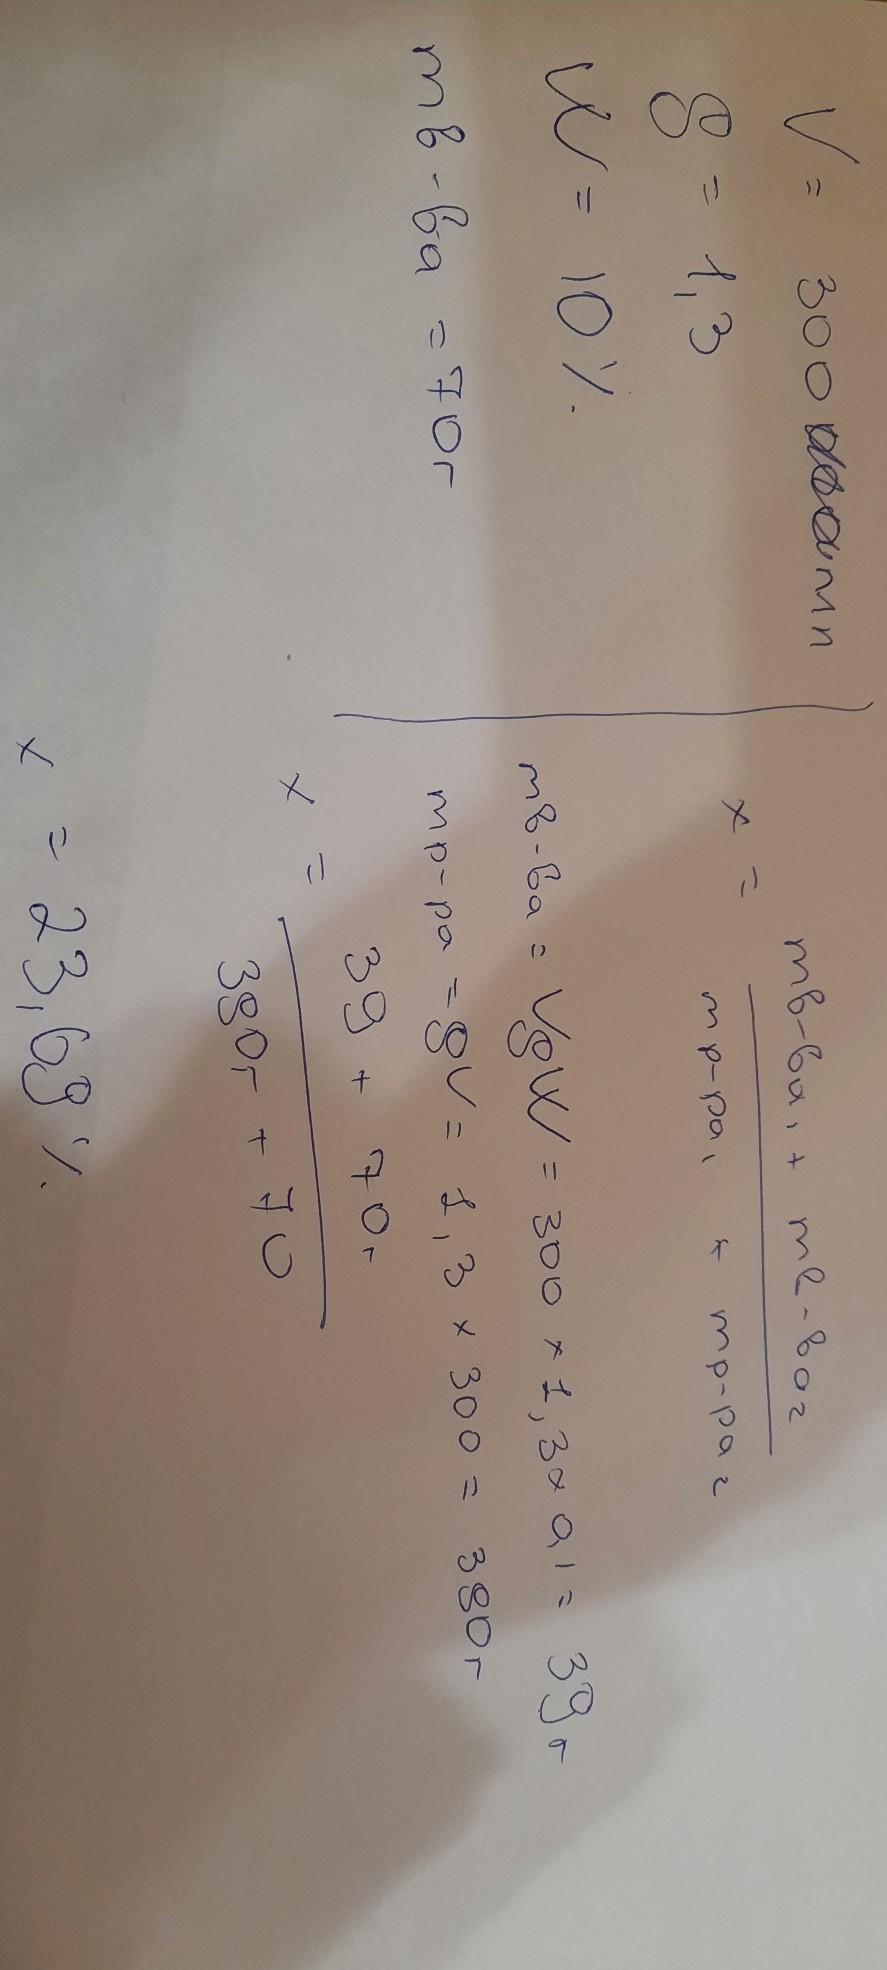 V = 300 мл
g = 1,3
W = 10%.
mв-ва = 70г
x = mв-ва, + mв-ва2
mр-ра, + mр-ра2
mв-ва = VgW = 300 × 1,3 × 0,1 = 39г
mр-ра = gV = 1,3 × 300 = 390г
x = 39 + 70г
390г + 70
x = 23,69%.